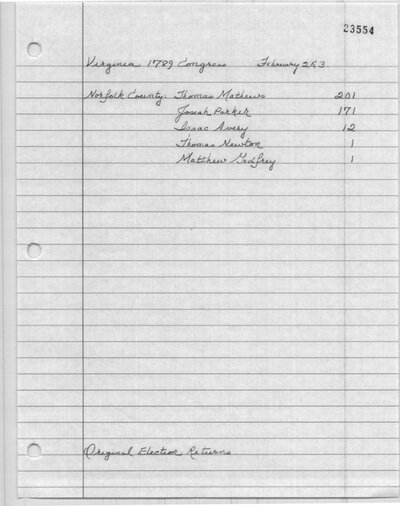 23554
Virginia 1789 Congress February 2&3
Norfolk County: Thomas Mathews 201
Josiah Parker 171
Isaac Avery 12
Thomas Newton 1
Matthew Godfrey 1
Original Election Returns.